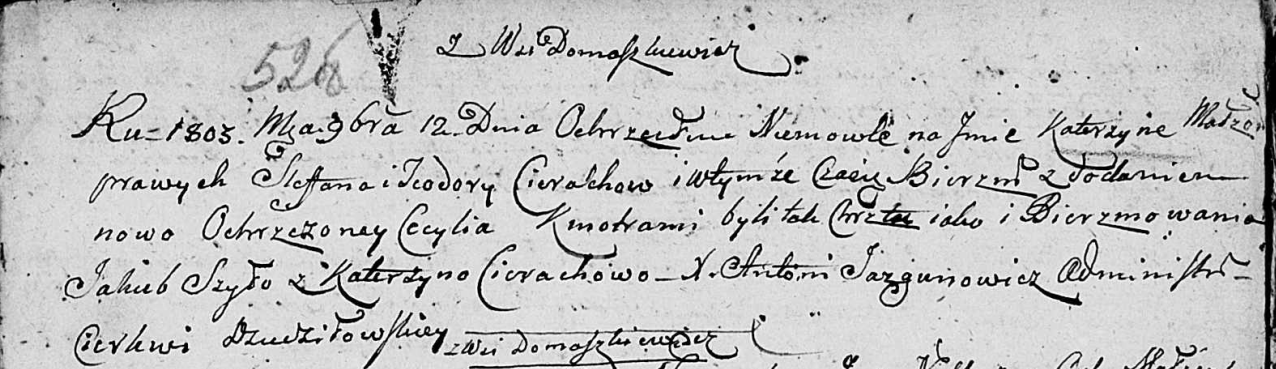 526
Z Wsi Domaszkiewicz
Ru 1803. Mca 9bra 12 Dnia Ochrzciłem Niemowlę na Jmie Katerzyne Małżon
prawych Steffana i Teodory Cierachow i wtymże Czasię Bierzm z dodaniem
nowo Ochrzczoney Cecylia Kmotrami byli tak Chrztu iako i Bierzmowania
Jakub Szyło z Katerzyno Cierachowo X. Antoni Jazgunowicz Administr-
Cierkwi Dziedziłowskiey
z Wsi Domaszkiewicz